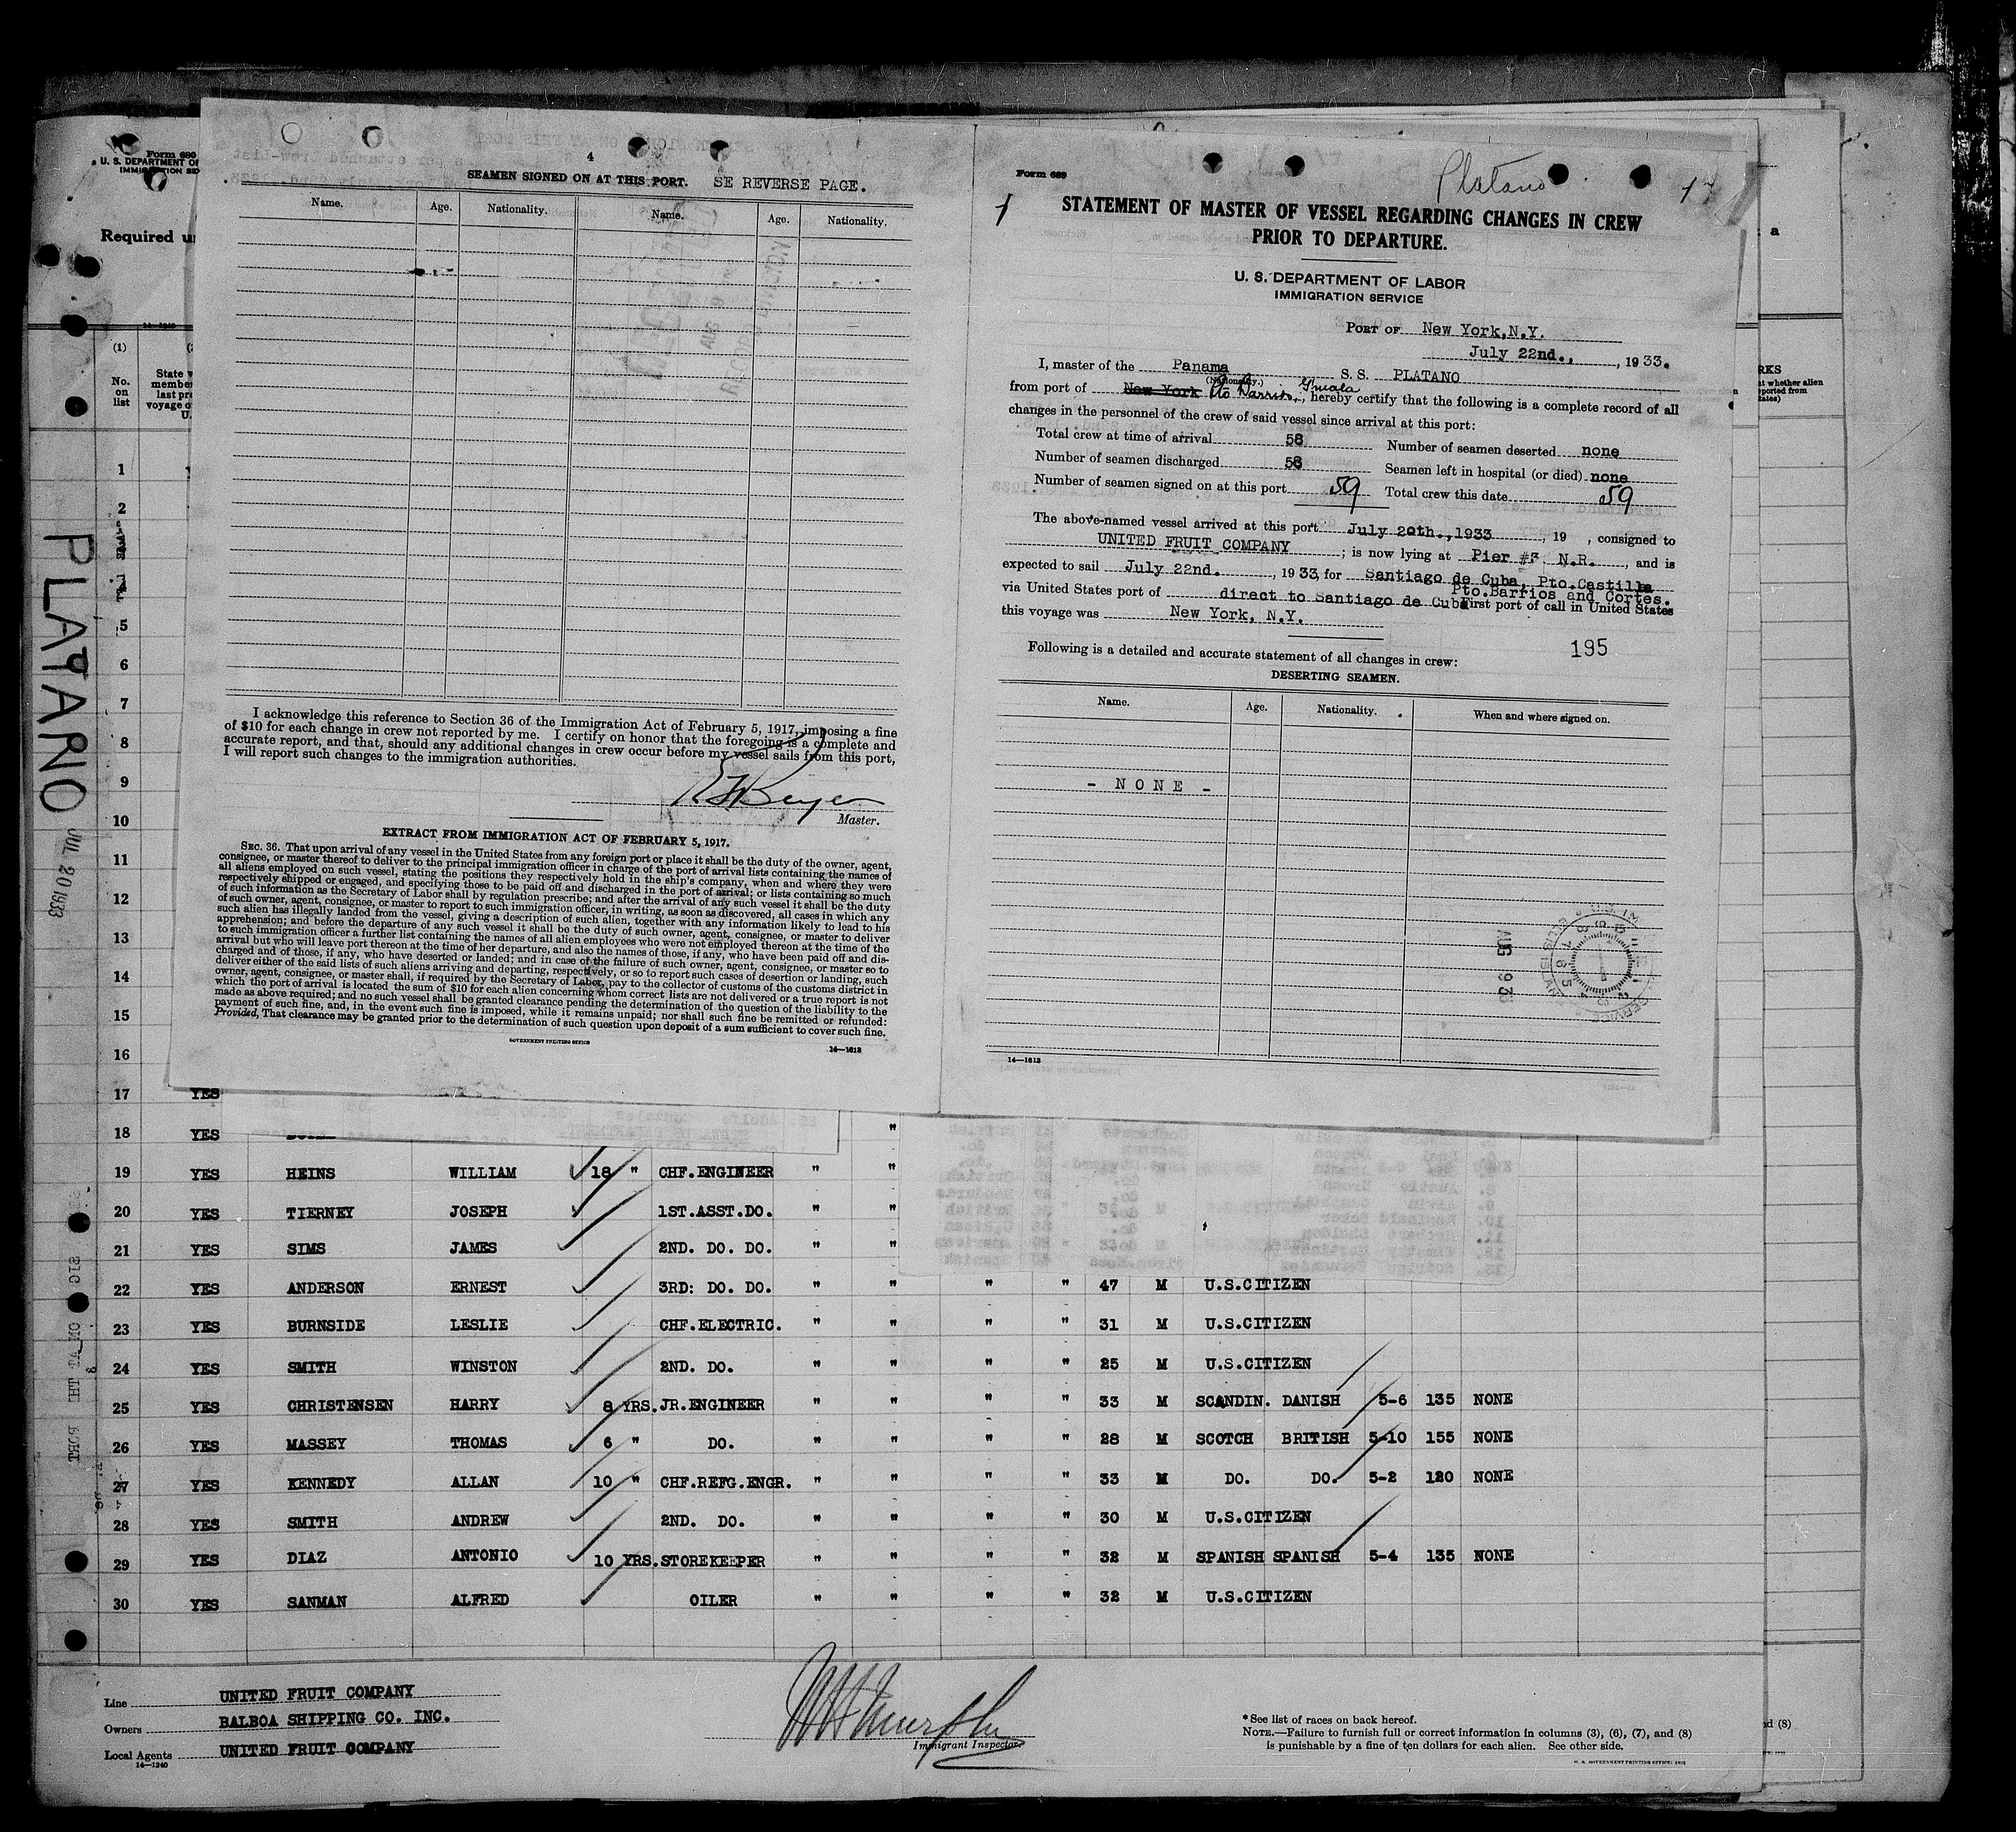 Form 680
U. S. DEPARTMENT OF
Required u
14—1240
(1)
No. on list
State
1
2
3
4
5
6
7
8
9
10
11
12
13
14
15
16
PLATANO
JUL 20 1933
4
SEAMEN SIGNED ON AT THIS PORT. SE REVERSE PAGE.
Name. Age. Nationality. Name. Age. Nationality.
I acknowledge this reference to Section 36 of the Immigration Act of February 5, 1917, imposing a fine
of $10 for each change in crew not reported by me. I certify on honor that the foregoing is a complete and
accurate report, and that, should any additional changes in crew occur before my vessel sails from this port,
I will report such changes to the immigration authorities.
Master.
EXTRACT FROM IMMIGRATION ACT OF FEBRUARY 5, 1917.
SEC. 36. That upon arrival of any vessel in the United States from any foreign port or place it shall be the duty of the owner, agent,
consignee, or master thereof to deliver to the principal immigration officer in charge of the port of arrival lists containing the names of
all aliens employed on such vessel, stating the positions they respectively hold in the ship's company, when and where they were
respectively shipped or engaged, and specifying those to be paid off and discharged in the port of arrival; or lists containing so much
of such information as the Secretary of Labor shall by regulation prescribe; and after the arrival of any such vessel it shall be the duty
of such owner, agent, consignee, or master to report to such immigration officer, in writing, as soon as discovered, all cases in which any
such alien has illegally landed from the vessel, giving a description of such alien, together with any information likely to lead to his
apprehension; and before the departure of any such vessel it shall be the duty of such owner, agent, consignee, or master to deliver
to such immigration officer a further list containing the names of all alien employees who were not employed thereon at the time of the
arrival but who will leave port thereon at the time of her departure, and also the names of those, if any, who have been paid off and dis-
charged and of those, if any, who have deserted or landed; and in case of the failure of such owner, agent, consignee, or master so to
deliver either of the said lists of such aliens arriving and departing, respectively, or so to report such cases of desertion or landing, such
owner, agent, consignee, or master shall, if required by the Secretary of Labor, pay to the collector of customs of the customs district in
which the port of arrival is located the sum of $10 for each alien concerning whom correct lists are not delivered or a true report is not
made as above required; and no such vessel shall be granted clearance pending the determination of the question of the liability to the
payment of such fine, and, in the event such fine is imposed, while it remains unpaid; nor shall such fine be remitted or refunded:
Provided, That clearance may be granted prior to the determination of such question upon deposit of a sum sufficient to cover such fine.
GOVERNMENT PRINTING OFFICE 14—1613
Form 689
Platano
17
1
STATEMENT OF MASTER OF VESSEL REGARDING CHANGES IN CREW
PRIOR TO DEPARTURE.
U. S. DEPARTMENT OF LABOR
IMMIGRATION SERVICE
PORT OF New York, N.Y.
July 22nd., , 1933.
I, master of the Panama S. S. PLATANO
(Nationality.)
from port of New York Pto Barrios, Gtmala, hereby certify that the following is a complete record of all
changes in the personnel of the crew of said vessel since arrival at this port:
Total crew at time of arrival 58 Number of seamen deserted none
Number of seamen discharged 58 Seamen left in hospital (or died) none
Number of seamen signed on at this port 59 Total crew this date 59
The above-named vessel arrived at this port July 20th.,1933 , 19 , consigned to
UNITED FRUIT COMPANY ; is now lying at Pier #3 N.R. , and is
expected to sail July 22nd. , 1933, for Santiago de Cuba, Pto.Castilla
Pto.Barrios and Cortes.
via United States port of direct to Santiago de Cuba First port of call in United States
this voyage was New York, N.Y.
195
Following is a detailed and accurate statement of all changes in crew:
DESERTING SEAMEN.
Name. Age. Nationality. When and where signed on.
- N O N E -
AUG 9 33
14—1613
17 YES
18 YES "
19 YES HEINS WILLIAM 18 " CHF.ENGINEER " "
20 YES TIERNEY JOSEPH 1ST.ASST.DO. " "
21 YES SIMS JAMES 2ND. DO. DO. " "
22 YES ANDERSON ERNEST 3RD: DO. DO. " " " " 47 M U.S.CITIZEN
23 YES BURNSIDE LESLIE CHF.ELECTRIC. " " " " 31 M U.S.CITIZEN
24 YES SMITH WINSTON 2ND. DO. " " " " 25 M U.S.CITIZEN
25 YES CHRISTENSEN HARRY 8 YRS. JR.ENGINEER " " " " 33 M SCANDIN. DANISH 5-6 135 NONE
26 YES MASSEY THOMAS 6 " DO. " " " " 28 M SCOTCH BRITISH 5-10 155 NONE
27 YES KENNEDY ALLAN 10 " CHF.REFG.ENGR. " " " " 33 M DO. DO. 5-2 120 NONE
28 YES SMITH ANDREW 2ND. DO. " " " " 30 M U.S.CITIZEN
29 YES DIAZ ANTONIO 10 YRS. STOREKEEPER " " " " 32 M SPANISH SPANISH 5-4 135 NONE
30 YES SANMAN ALFRED OILER " " " " 32 M U.S.CITIZEN
Line UNITED FRUIT COMPANY
Owners BALBOA SHIPPING CO. INC.
Local Agents UNITED FRUIT COMPANY
14—1240
Immigrant Inspector.
* See list of races on back hereof.
NOTE.—Failure to furnish full or correct information in columns (3), (6), (7), and (8)
is punishable by a fine of ten dollars for each alien. See other side.